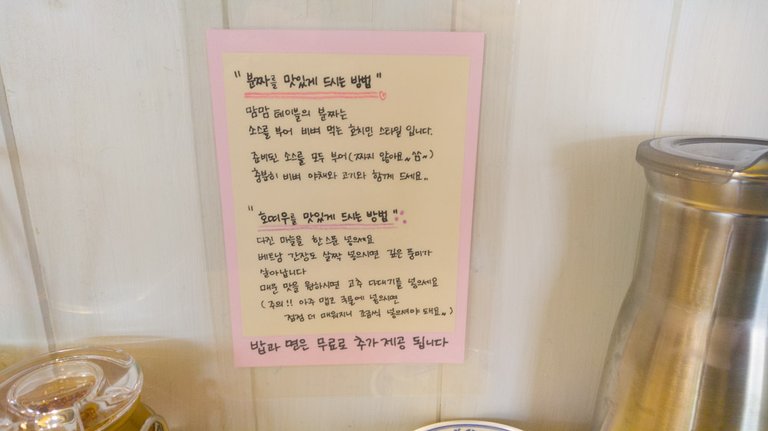 "분짜를 맛있게 드시는 방법"
맘맘 테이블의 분짜는
소스를 부어 비벼 먹는 호치민 스타일 입니다.
준비된 소스를 모두 부어(짜지 않아요~^^~)
충분히 비벼 야채와 고기와 함께 드세요..
"호띠우를 맛있게 드시는 방법"
다진 마늘을 한스푼 넣으세요
베트남 간장도 살짝 넣으시면 깊은 풍미가
살아납니다
매운 맛을 원하시면 고추 다대기를 넣으세요
(주의!! 아주 맵고 국물에 넣으시면
점점 더 매워지니 조금씩 넣으셔야 돼요~)
밥과 면은 무료로 추가 제공 됩니다